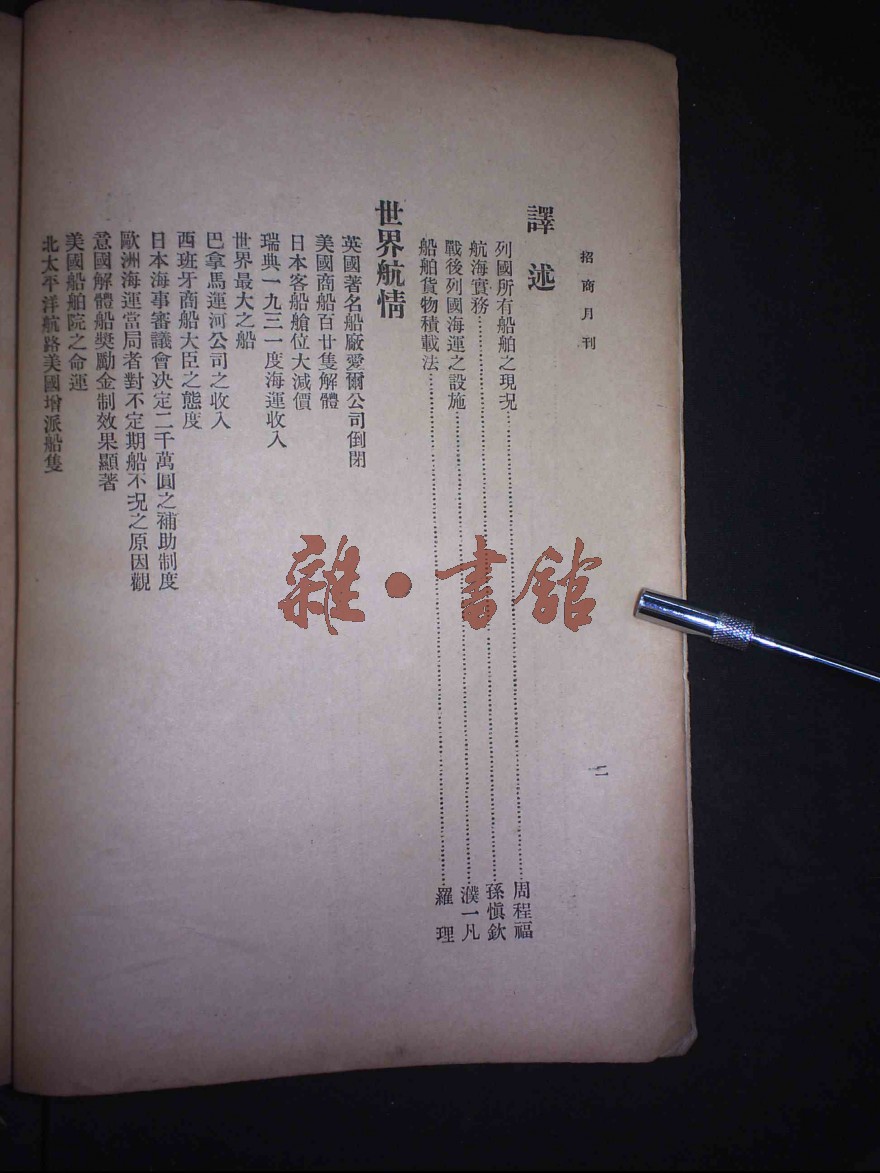 招商月刊
二
譯述
列國所有船舶之現况……周程福
航海實務……孫愼欽
戰後列國海運之設施……濮一凡
船舶貨物積載法……羅理
世界航情
英國著名船廠愛爾公司倒閉
美國商船百廿隻解體
日本客船艙位大減價
瑞典一九三一度海運收入
世界最大之船
巴拿馬運河公司之收入
西班牙商船大臣之態度
日本海事審議會决定二千萬圓之補助制度
歐洲海運當局者對不定期船不况之原因觀
意國解體船奬勵金制效果顯著
美國船舶院之命運
北太平洋航路美國增派船隻
雜·書舘